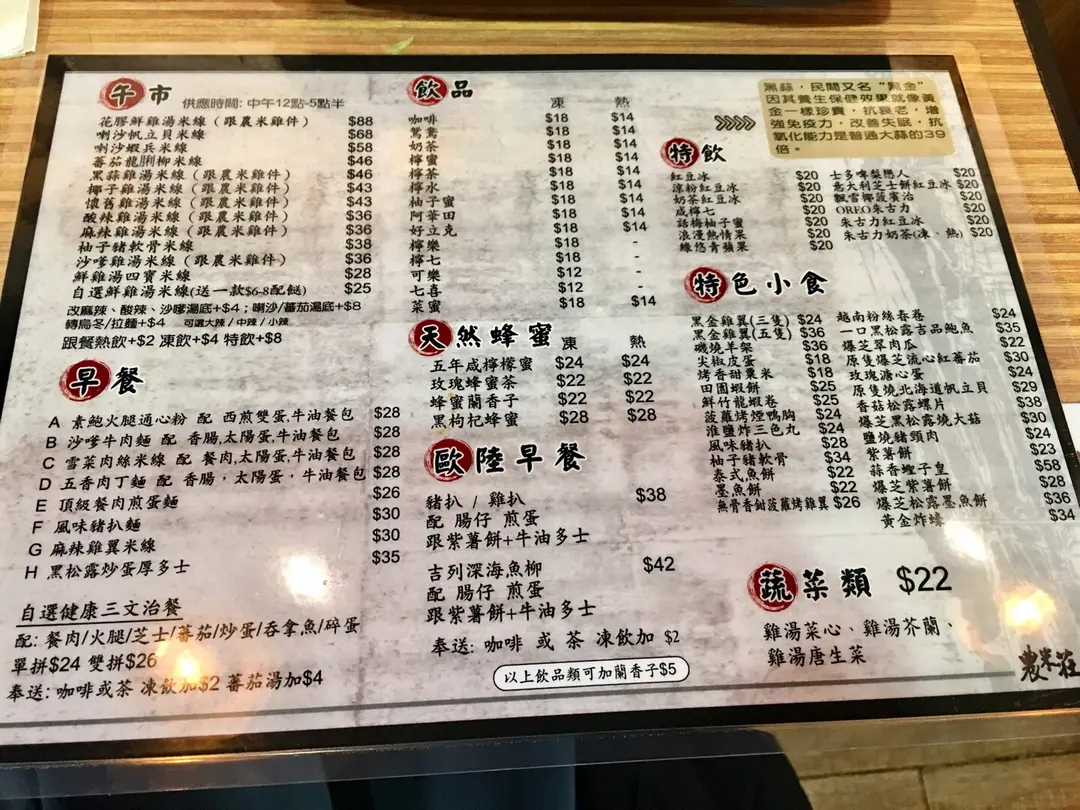 午市 供應時間: 中午12點-5點半
花膠鮮雞湯米線（跟農米雞件） $88
喇沙帆立貝米線 $68
喇沙蝦兵米線 $58
蕃茄龍脷柳米線 $46
黑蒜雞湯米線（跟農米雞件） $46
椰子雞湯米線（跟農米雞件） $43
懷舊雞湯米線（跟農米雞件） $43
酸辣雞湯米線（跟農米雞件） $36
麻辣雞湯米線（跟農米雞件） $36
柚子豬軟骨米線 $38
沙嗲雞湯米線（跟農米雞件） $36
鮮雞湯四寶米線 $28
自選鮮雞湯米線(送一款$6-8配餸) $25
改麻辣、酸辣、沙嗲湯底+$4；喇沙/蕃茄湯底+$8
轉烏冬/拉麵+$4 可選大辣/中辣/小辣
跟餐熱飲+$2 凍飲+$4 特飲+$8
早餐
A 素鮑火腿通心粉 配 西煎雙蛋,牛油餐包 $28
B 沙嗲牛肉麵 配 香腸,太陽蛋,牛油餐包 $28
C 雪菜肉絲米線 配 餐肉,太陽蛋,牛油餐包 $28
D 五香肉丁麵 配 香腸，太陽蛋，牛油餐包 $28
E 頂級餐肉煎蛋麵 $26
F 風味豬扒麵 $30
G 麻辣雞翼米線 $30
H 黑松露炒蛋厚多士 $35
自選健康三文治餐
配: 餐肉/火腿/芝士/蕃茄/炒蛋/吞拿魚/碎蛋
單拼$24 雙拼$26
奉送: 咖啡或茶 凍飲加$2 蕃茄湯加$4
飲品 凍 熱
咖啡 $18 $14
鴛鴦 $18 $14
奶茶 $18 $14
檸蜜 $18 $14
檸茶 $18 $14
檸水 $18 $14
柚子蜜 $18 $14
阿華田 $18 $14
好立克 $18 $14
檸樂 $18 -
檸七 $18 -
可樂 $12 -
七喜 $12 -
菜蜜 $18 $14
天然蜂蜜 凍 熱
五年咸檸檬蜜 $24 $24
玫瑰蜂蜜茶 $22 $22
蜂蜜蘭香子 $22 $22
黑枸杞蜂蜜 $28 $28
歐陸早餐
豬扒 / 雞扒 $38
配 腸仔 煎蛋
跟紫薯餅+牛油多士
吉列深海魚柳 $42
配 腸仔 煎蛋
跟紫薯餅+牛油多士
奉送: 咖啡 或 茶 凍飲加 $2
以上飲品類可加蘭香子$5
黑蒜，民間又名“黑金”
因其養生保健效果就像黃
金一樣珍貴，抗衰老，增
強免疫力，改善失眠，抗
氧化能力是普通大蒜的39
倍。
特飲
紅豆冰 $20
涼粉紅豆冰 $20
奶茶紅豆冰 $20
咸檸七 $20
話梅柚子蜜 $20
浪漫熱情果 $20
綠悠青蘋果 $20
士多啤梨戀人 $20
意大利芝士餅紅豆冰 $20
飄雪椰菠賓治 $20
OREO朱古力 $20
朱古力紅豆冰 $20
朱古力奶茶(凍、熱) $20
特色小食
黑金雞翼(三隻) $24
黑金雞翼(五隻) $36
磯燒羊架 $36
尖椒皮蛋 $18
烤香甜粟米 $18
田園蝦餅 $25
鮮竹龍蝦卷 $25
菠蘿烤煙鴨胸 $24
淮鹽炸三色丸 $24
風味豬扒 $28
柚子豬軟骨 $34
泰式魚餅 $22
墨魚餅 $22
無骨香甜菠蘿烤雞翼 $26
越南粉絲春卷 $24
一口黑松露吉品鮑魚 $35
爆芝翠肉瓜 $22
原隻爆芝流心紅蕃茄 $30
玫瑰溏心蛋 $24
原隻燒北海道帆立貝 $29
香菇松露螺片 $38
爆芝黑松露燒大菇 $30
鹽燒豬頸肉 $24
紫薯餅 $23
蒜香蟶子皇 $58
爆芝紫薯餅 $28
爆芝松露墨魚餅 $36
黃金炸蠔 $34
蔬菜類 $22
雞湯菜心、雞湯芥蘭、
雞湯唐生菜
農米莊